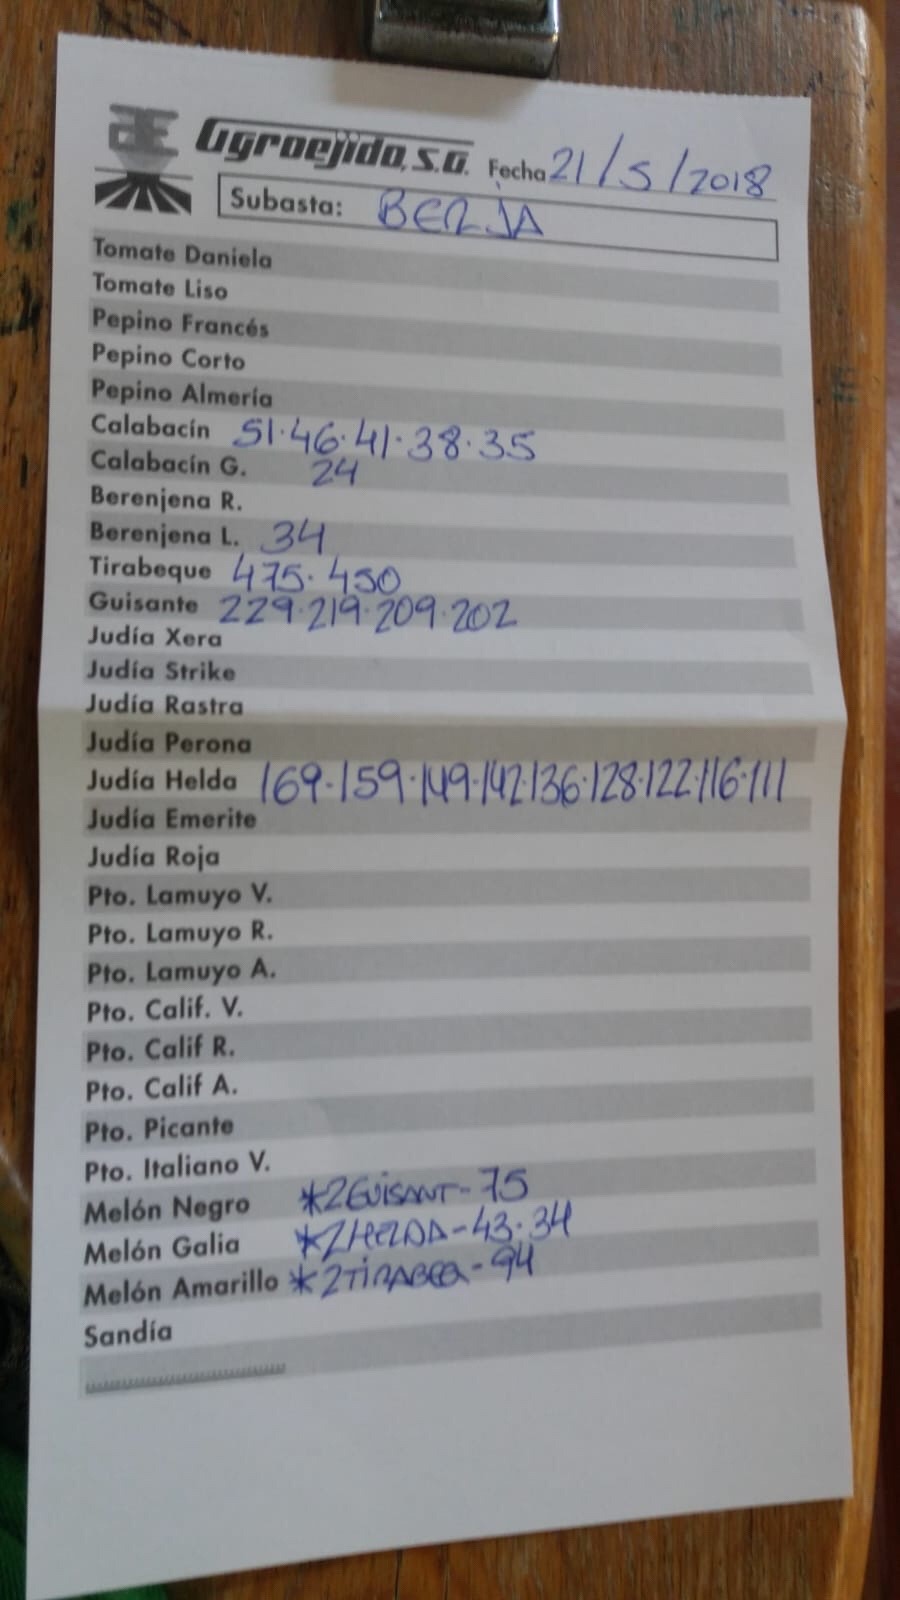 Agroejido, S.A. Fecha 21/5/2018
Subasta: BERJA
Tomate Daniela
Tomate Liso
Pepino Francés
Pepino Corto
Pepino Almería
Calabacín 51·46·41·38·35
Calabacín G. 24
Berenjena R.
Berenjena L. 34
Tirabeque 475·450
Guisante 229·219·209·202
Judía Xera
Judía Strike
Judía Rastra
Judía Perona
Judía Helda 169·159·149·142·136·128·122·116·111
Judía Emerite
Judía Roja
Pto. Lamuyo V.
Pto. Lamuyo R.
Pto. Lamuyo A.
Pto. Calif. V.
Pto. Calif R.
Pto. Calif A.
Pto. Picante
Pto. Italiano V.
Melón Negro *2GUISANT-75
Melón Galia *2HELDA-43·34
Melón Amarillo *2TIRABEQ-94
Sandía